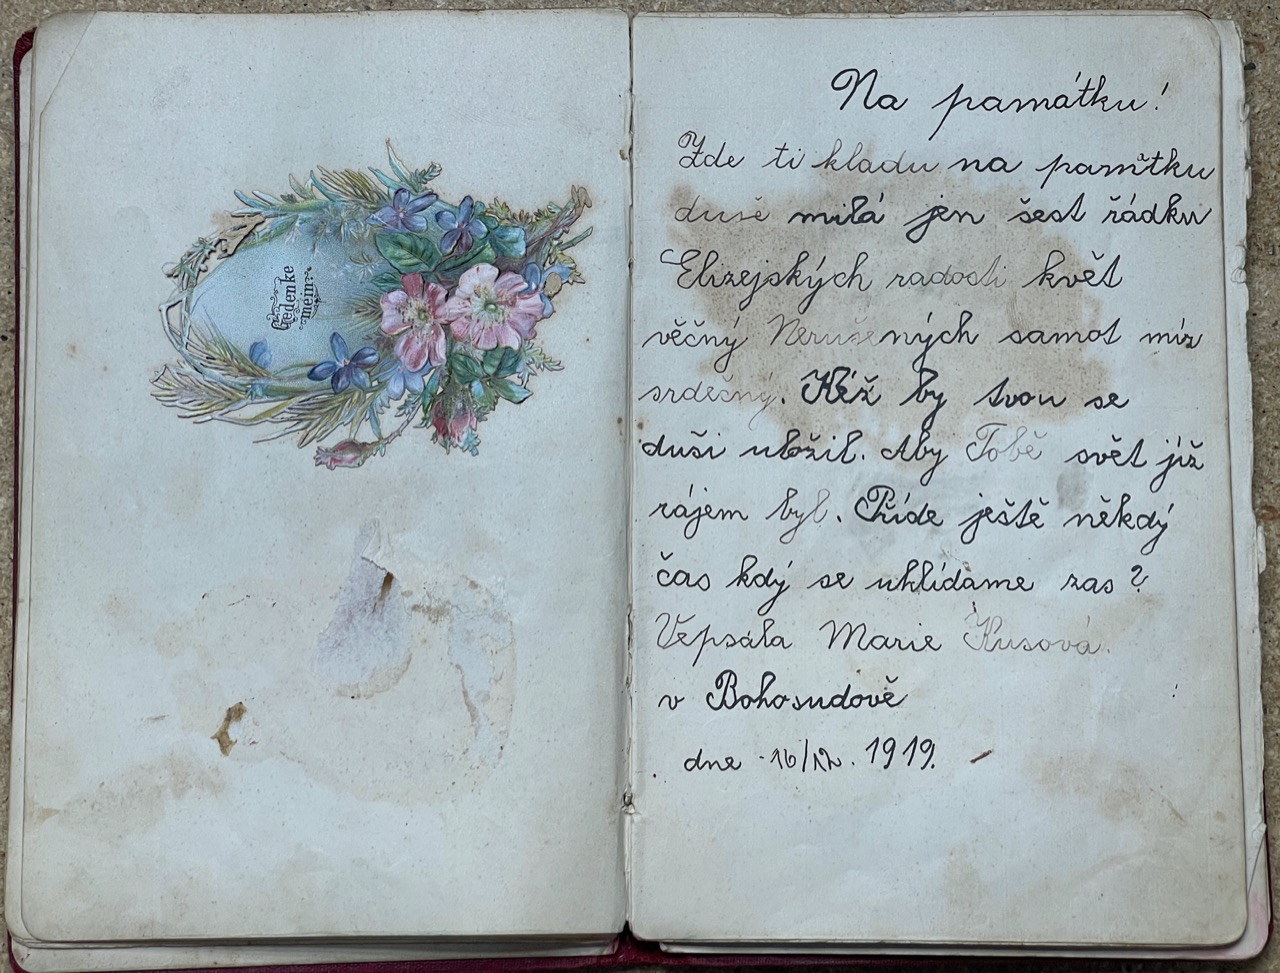 Gedenke
mein!
Na památku!
Zde ti kladu na památku
duše milá jen šest řádku
Elizejských radosti květ
věčný Nerušených samot mír
srdečný. Kéž by tvou se
duši uložil. Aby Tobě svět již
rájem byl. Příde ještě někdý
čas kdý se uhlídame zas?
Vepsála Marie Kusová.
v Bohosudově
dne 16/12. 1919.